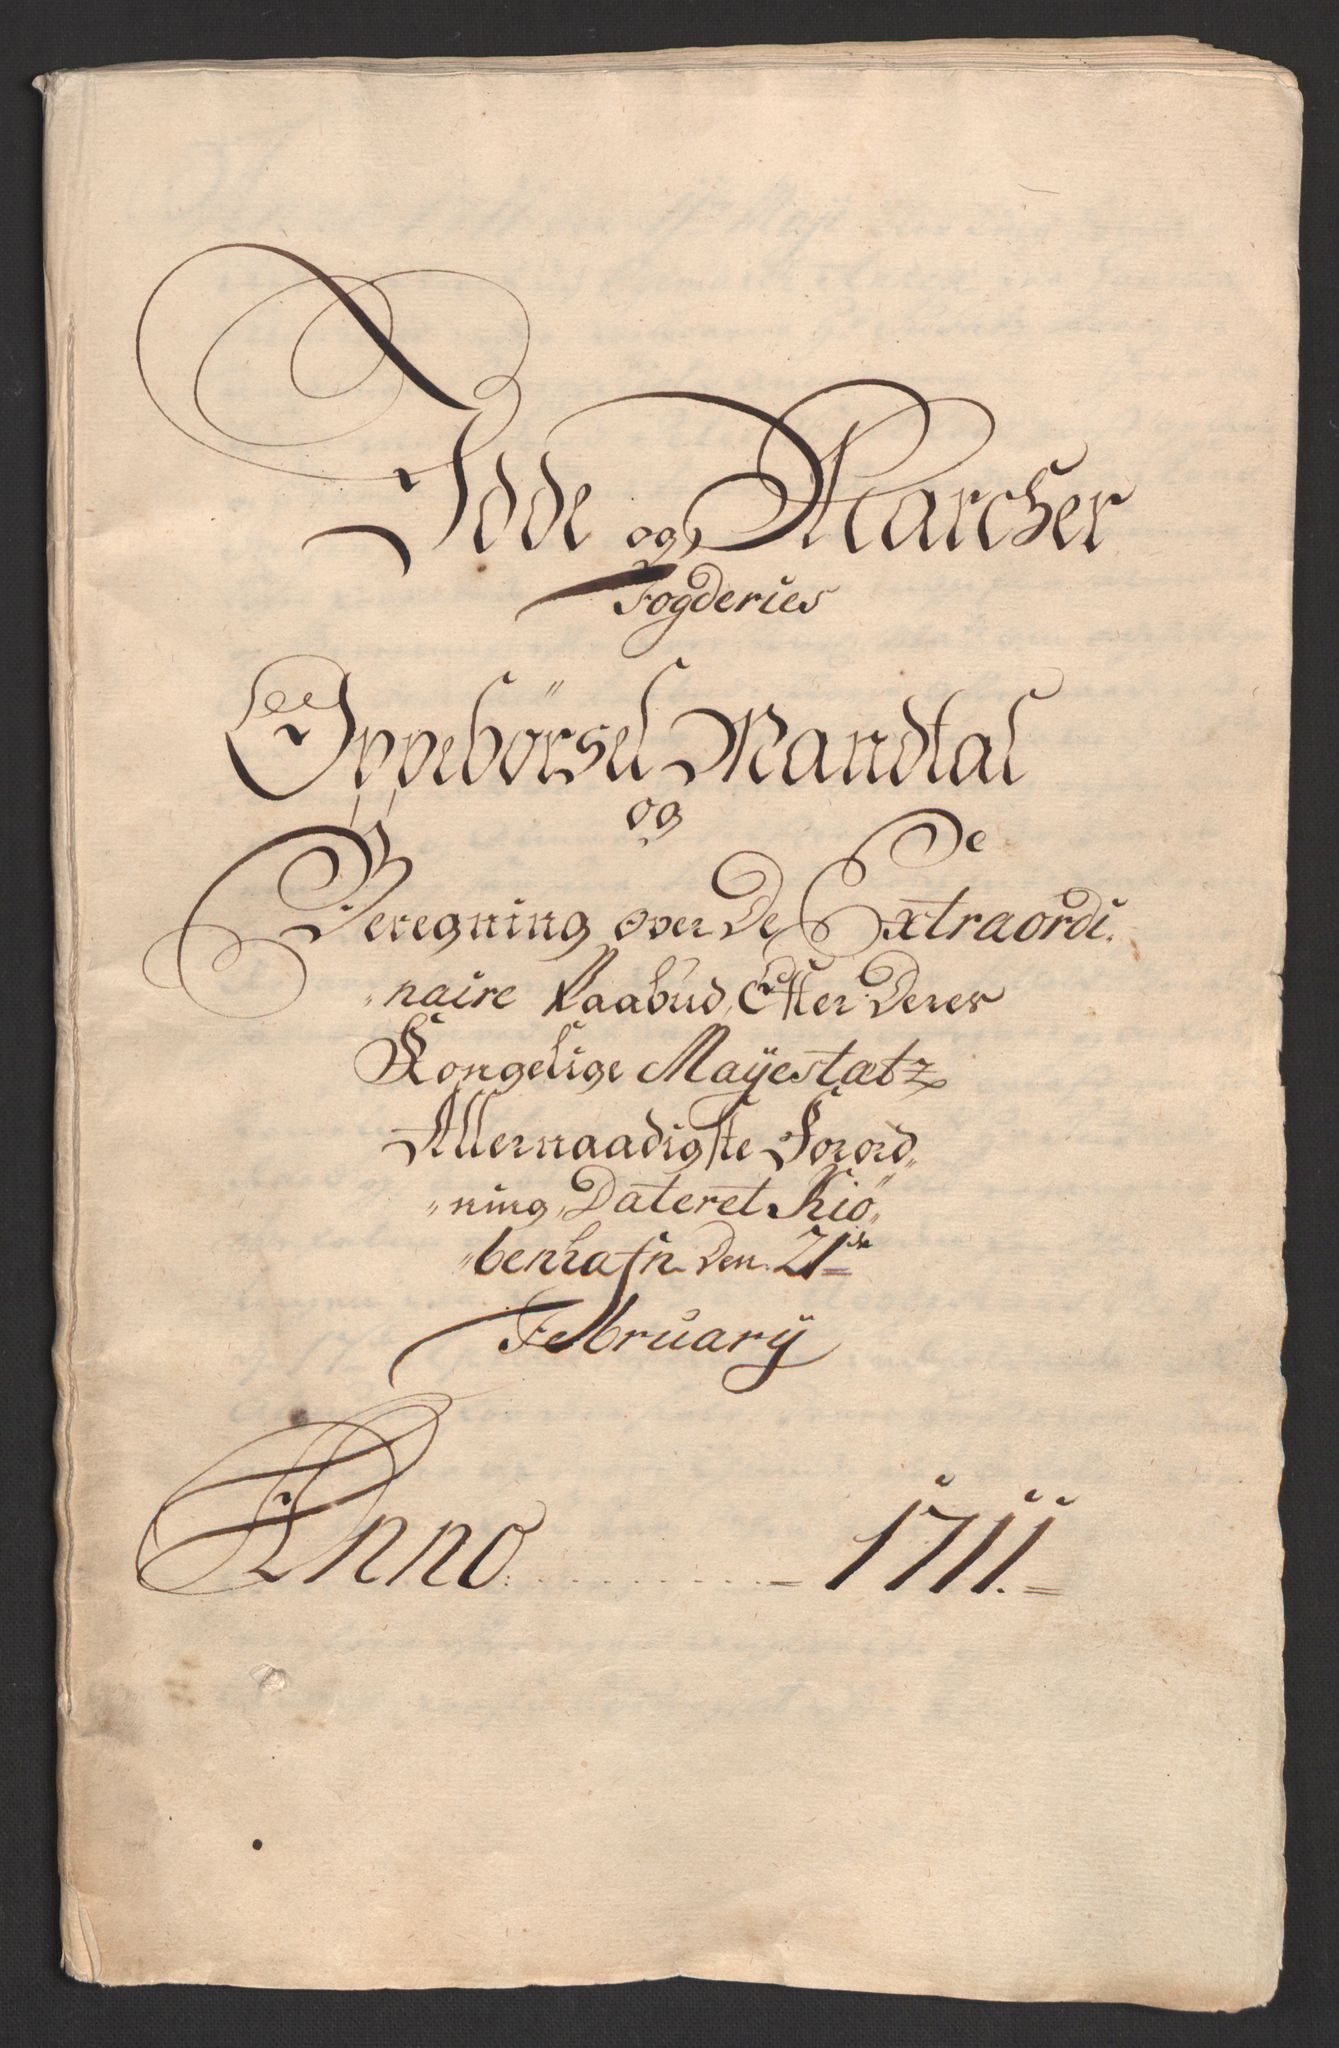 Idde og Marcher
Fogderies
Oppebörsel Mandtal
og
Beregning over De Extraordi,
"naire Paabud, Efter Deres
Kongelige Mayestætz
Allernaadigste Forord"
"ning, Dateret Kiö"
"benhafn Den 21de
February
Anno 1711